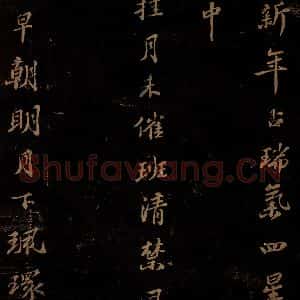 新年占瑞氣四星
中
挂月未催班清禁
早朝明月下珮
ShufaWang.CN